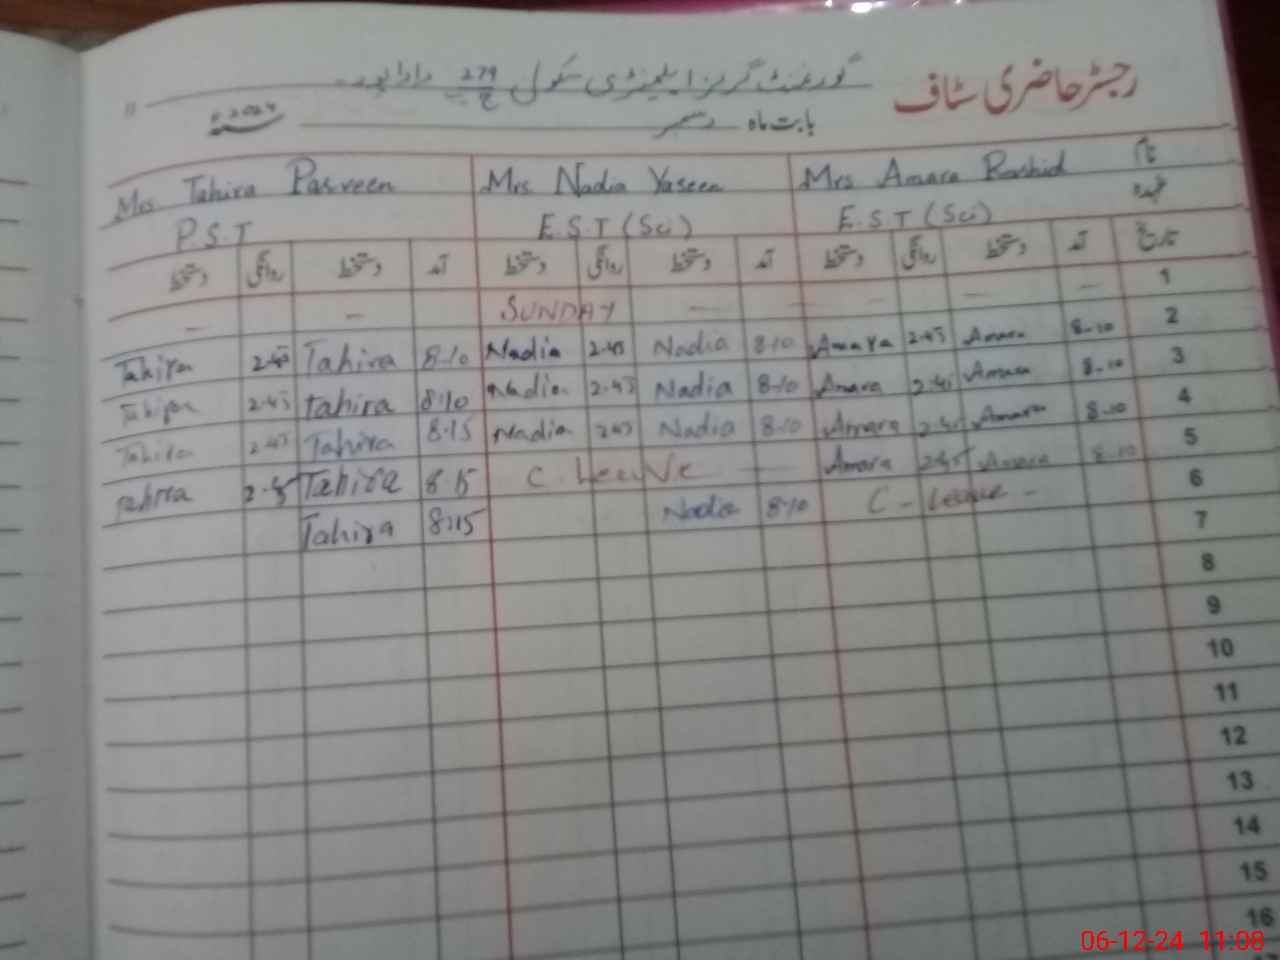 رجسٹر حاضری سٹاف
گورنمنٹ گرلز ایلیمنٹری سکول 279 ج ب دادا پور
بابت ماہ دسمبر سنہ 2024ء
نام Mrs Amara Rashid Mrs Nadia Yaseen Mrs Tahira Parveen
عہدہ E.S.T (Sci) E.S.T (Sci) P.S.T
تاریخ آمد دستخط روانگی دستخط آمد دستخط روانگی دستخط آمد دستخط روانگی دستخط
1 — — — — — SUNDAY — —
2 8-10 Amara 2-45 Amara 8-10 Nadia 2-45 Nadia 8-10 Tahira 2-45 Tahira
3 8-10 Amara 2-45 Amara 8-10 Nadia 2-45 Nadia 8:10 tahira 2-45 Tahira
4 8-10 Amara 2-45 Amara 8-10 Nadia 2-45 Nadia 8-15 Tahira 2-45 Tahira
5 8-10 Amara 2-45 Amara — C. Leave 8-15 Tahira 2-45 Tahira
6 C - Leave - 8-10 Nadia 8:15 Tahira
7
8
9
10
11
12
13
14
15
16
06-12-24 11:08